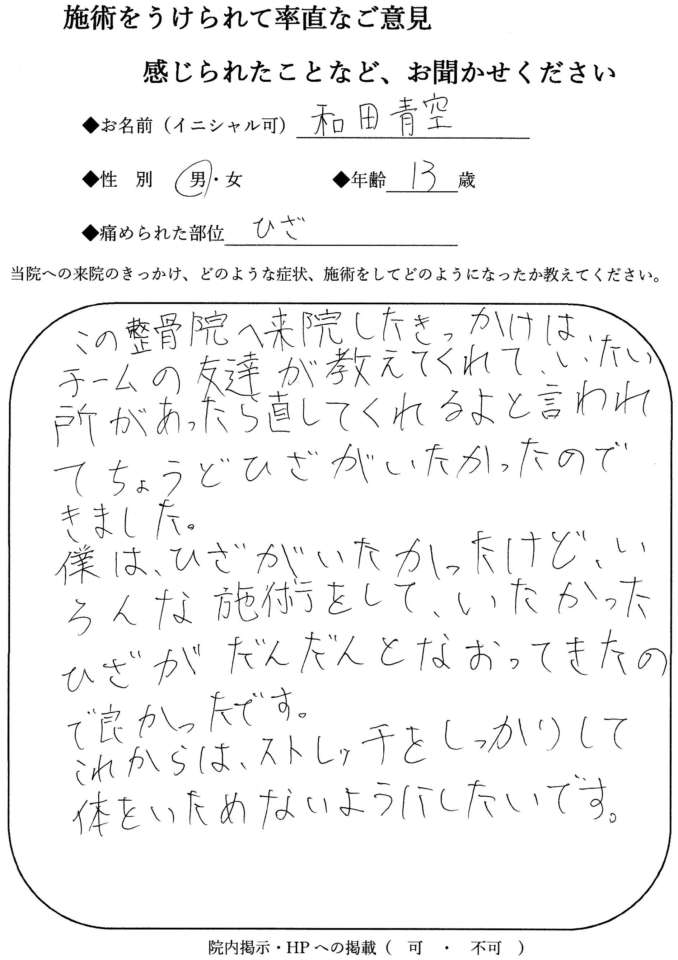 施術をうけられて率直なご意見
感じられたことなど、お聞かせください
◆お名前（イニシャル可） 和田青空
◆性　別　男・女　◆年齢 13 歳
◆痛められた部位 ひざ
当院への来院のきっかけ、どのような症状、施術をしてどのようになったか教えてください。
この整骨院へ来院したきっかけは、
チームの友達が教えてくれて、いたい
所があったら直してくれるよと言われ
てちょうどひざがいたかったので
きました。
僕は、ひざがいたかったけど、い
ろんな施術をして、いたかった
ひざがだんだんとなおってきたの
で良かったです。
これからは、ストレッチをしっかりして
体をいためないようにしたいです。
院内掲示・HPへの掲載（　可　・　不可　）